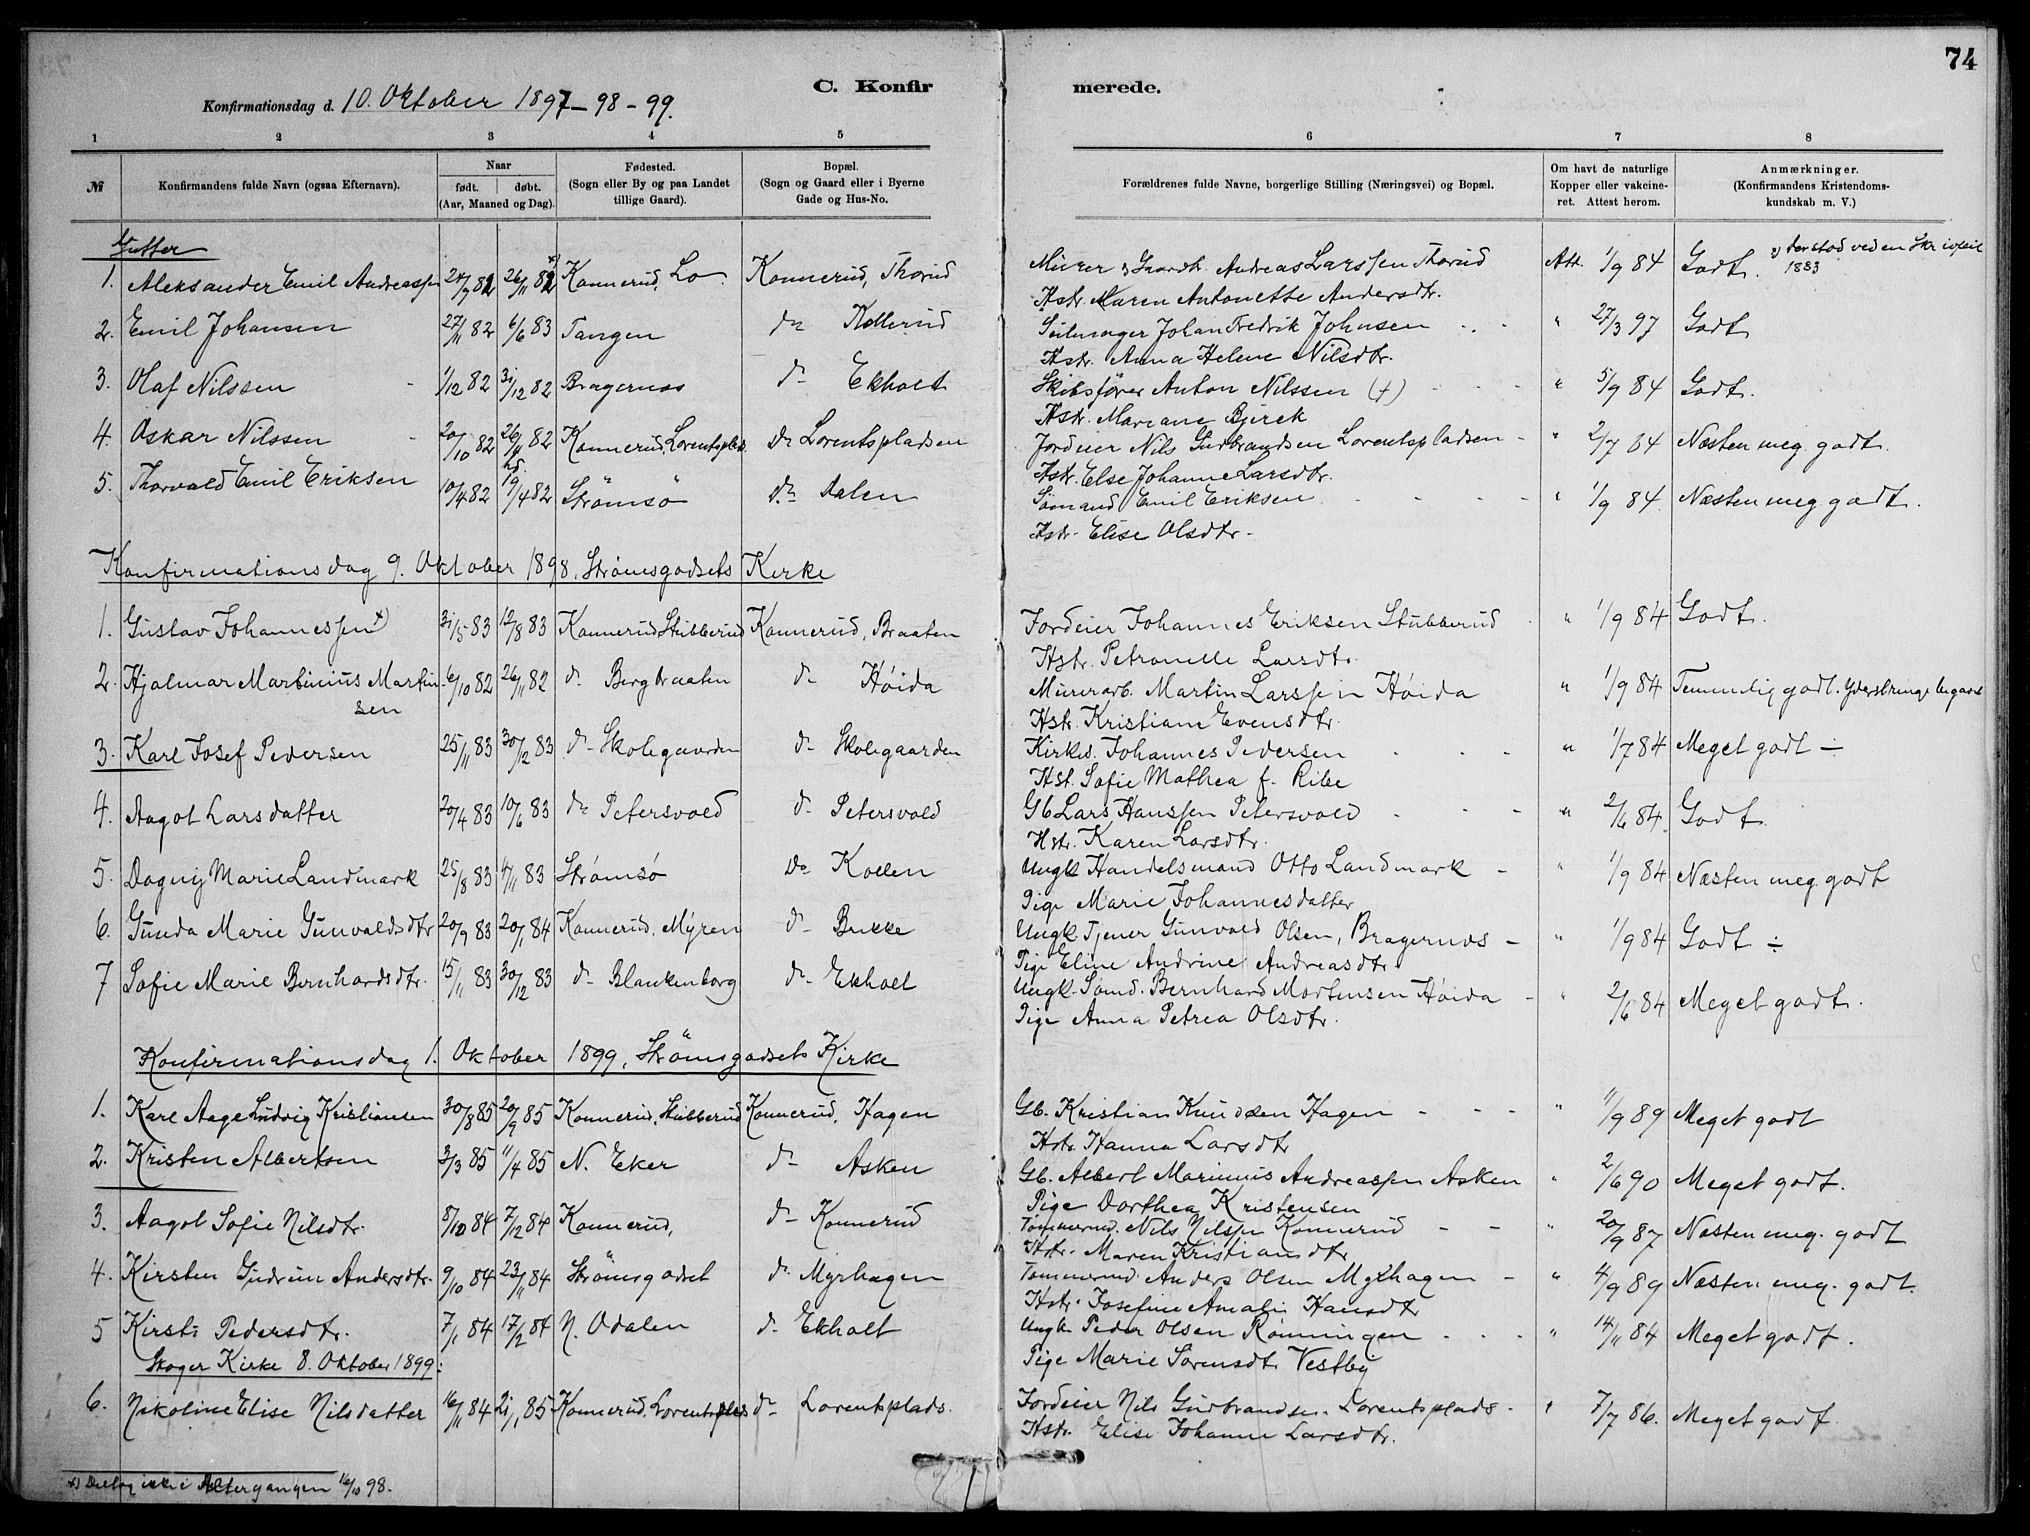 74
C. Konfirmerede.
Konfirmationsdag d. 10. Oktober 1897 - 98 - 99.
1 2 3 4 5 6 7 8
№ Konfirmandens fulde Navn (ogsaa Efternavn). Naar født. døbt. (Aar, Maaned og Dag). Fødested. (Sogn eller By og paa Landet tillige Gaard). Bopæl. (Sogn og Gaard eller i Byerne Gade og Hus-No. Forældrenes fulde Navne, borgerlige Stilling (Næringsvei) og Bopæl. Om havt de naturlige Kopper eller vakcineret. Attest herom. Anmærkninger. (Konfirmandens Kristendomskundskab m. V.)
Gutter
1. Aleksander Emil Andreassen 24/7 82 26/11 82 Konnerud, Lo. Konnerud, Thorud Murer Andreas Larssen Thorud Att. 1/9 84 Godt. der stod ved en 1883
Hstr. Maren Antonette Andersdtr.
2. Emil Johansen 27/11 82 6/6 83 Tangen do Kollerud Seilmager Johan Fredrik Johnsen " 27/3 97 Godt
Hstr. Anna Helene Nilsdtr.
3. Olaf Nilssen 1/12 82 31/12 82 Bragernæs do Ekholt Skibsfører Anton Nilssen (+) " 5/9 84 Godt.
Hstr. Mariane Bjerck
4. Oskar Nilssen 20/10 82 26/11 82 Konnerud, Lorentsplads do Lorentspladsen Jordeier Nils Gudbrandsen Lorentspladsen " 2/7 84 Næsten meg. godt.
Hstr. Else Johanne Larsdtr.
5. Thorvald Emil Eriksen 10/4 82 hd. 19/4 82 Strømsö do Dalen Sömand Emil Eriksen " 1/9 84 Næsten meg. godt.
Hstr. Elise Olsdtr.
Konfirmationsdag 9. Oktober 1898. Strømsgodsets Kirke
1. Gustav Johannessen x) 31/5 83 12/8 83 Konnerud Stubberud Konnerud, Braaten Jordeier Johannes Eriksen Stubberud " 1/9 84 Godt.
Hstr. Petronelle Larsdtr.
2. Hjalmar Martinius Martinsen 6/10 82 26/11 82 do Bergbraaten do Høida Murerarb. Martin Larssen Høida " 1/9 84 Temmelig godt.
Hstr. Kristiane Evensdtr.
3. Karl Josef Pedersen 25/11 83 30/12 83 do Skolegaarden do Skolegaarden Kirkes. Johannes Pedersen " 1/7 84 Meget godt ÷
Hst. Sofie Mathea f. Ribe
4. Aagot Larsdatter 20/4 83 10/6 83 do Petersvold do Petersvold Gb Lars Hanssen Petersvold " 2/6 84. Godt
Hstr. Karen Larsdtr.
5. Dagny Marie Landmark 25/8 83 4/11 83 Strømsø do Kollen Ungk. Handelsmand Otto Landmark " 1/9 84 Næsten meg. godt
Pige Marie Johannesdatter
6. Gunda Marie Gunvaldsdtr 20/9 83 20/1 84 Konnerud, Myren do Bukke Ungk. Tjener Gunvald Olsen, Bragernæs " 1/9 84 Godt ÷
Pige Eline Andrine Andreasdtr
7 Sofie Marie Bernhardsdtr. 15/11 83 30/12 83 do Blankenborg do Ekholt Ungk. Sømd. Bernhard Mortensen Høida " 2/6 84 Meget godt.
Pige Anna Petrea Olsdtr.
Konfirmationsdag 1. Oktober 1899, Strömsgodsets Kirke
1. Karl Aage Ludvig Kristiansen 30/8 85 20/9 85 Konnerud, Stubberud Konnerud, Hagen Gb. Kristian Knudsen Hagen " 11/9 89 Meget godt
Hstr. Hanna Larsdtr
2. Kristen Albertsen 3/3 85 11/4 85 N. Eker do Asken Gb. Albert Marinius Andreassen Asken " 2/6 90 Meget godt.
Pige Dorthea Kristensen
3. Aagot Sofie Nilsdtr. 8/10 84 7/12 84 Konnerud, do Konnerud Tømmermd. Nils Nilssen Konnerud " 20/9 87 Næsten meg. godt
Hstr. Maren Kristiansdtr
4. Kirsten Gudrun Andersdtr. 9/10 84 23/11 84 Strömsgodset do Myrhagen Tømmermd. Anders Olsen Myrhagen " 4/9 89 Næsten meg. godt.
Hstr. Josefine Amalie Hansdtr
5 Kirsti Pedersdtr. 7/1 84 17/2 84 N. Odalen do Ekholt Ungk. Peder Olsen Rønningen " 14/11 84 Meget godt.
Pige Marie Sørensdtr Vestby
Skoger Kirke 8. Oktober 1899:
6. Nikoline Elise Nilsdatter 16/11 84 21/1 85 Konnerud, Lorentsplads do Lorentsplads. Jordeier Nils Gudbrandsen Lorentsplads " 7/7 86. Meget godt.
Hstr. Elise Johanne Larsdtr.
x) Deltog ikke i Altergangen 16/10 98.